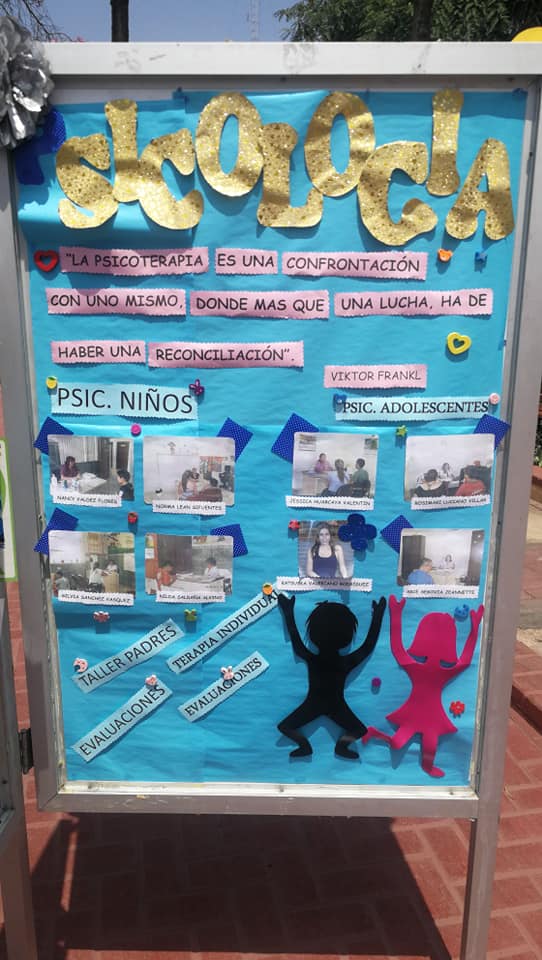 PSICOLOGIA
"LA PSICOTERAPIA ES UNA CONFRONTACIÓN
CON UNO MISMO, DONDE MAS QUE UNA LUCHA, HA DE
HABER UNA RECONCILIACIÓN".
VIKTOR FRANKL
PSIC. NIÑOS
PSIC. ADOLESCENTES
NANCY VALDEZ FLORES
NORMA LEAN SIFUENTES
JESSICA HUARCAYA VALENTIN
ROSIMARI LUCIANO VILLAR
SILVIA SANCHEZ VASQUEZ
NILDA SALDAÑA ALBINO
KATUSKA VALERIANO RODRIGUEZ
JEANNETTE
TALLER PADRES
TERAPIA INDIVIDUAL
EVALUACIONES
EVALUACIONES